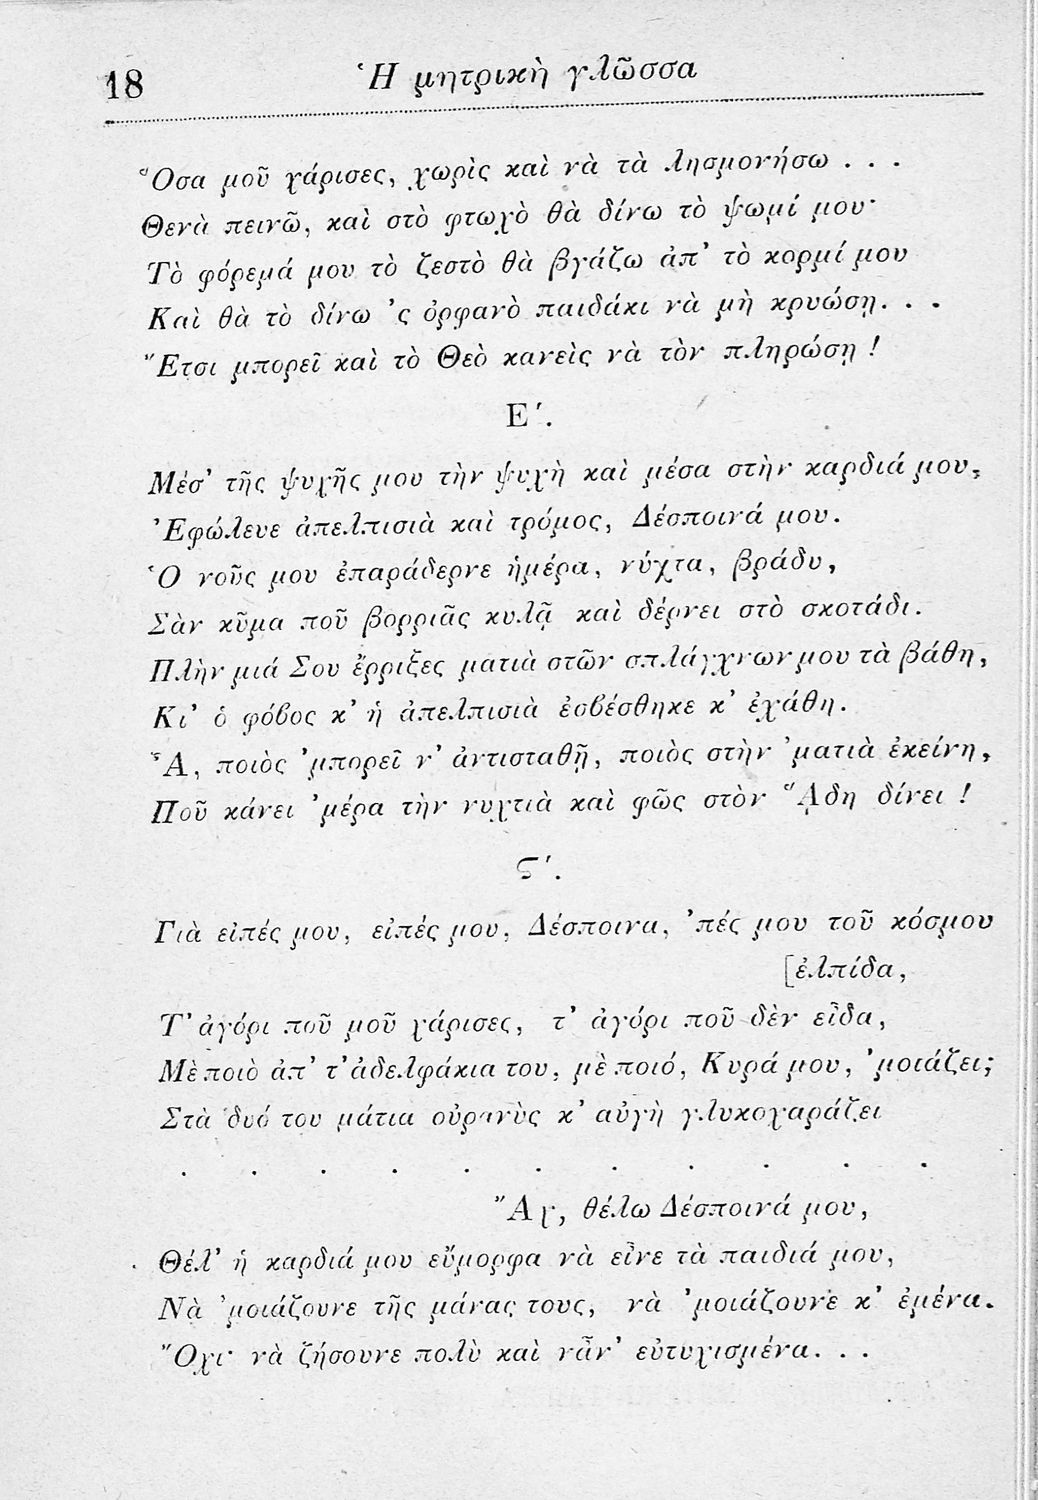 18
Ἡ μητρικὴ γλῶσσα
Ὅσα μοῦ χάρισες, χωρὶς καὶ νὰ τὰ λησμονήσω . . .
Θενὰ πεινῶ, καὶ στὸ φτωχὸ θὰ δίνω τὸ ψωμί μου·
Τὸ φόρεμά μου τὸ ζεστὸ θὰ βγάζω ἀπ’ τὸ κορμί μου
Καὶ θὰ τὸ δίνω ’ς ὀρφανὸ παιδάκι νὰ μὴ κρυώσῃ. . .
Ἔτσι μπορεῖ καὶ τὸ Θεὸ κανεὶς νὰ τὸν πληρώσῃ !
Ε΄.
Μέσ’ τῆς ψυχῆς μου τὴν ψυχὴ καὶ μέσα στὴν καρδιά μου,
Ἐφώλευε ἀπελπισιὰ καὶ τρόμος, Δέσποινά μου.
Ὁ νοῦς μου ἐπαράδερνε ἡμέρα, νύχτα, βράδυ,
Σὰν κῦμα ποῦ βορριᾶς κυλᾷ καὶ δέρνει στὸ σκοτάδι.
Πλὴν μιά Σου ἔρριξες ματιὰ στῶν σπλάγχνων μου τὰ βάθη,
Κι’ ὁ φόβος κ’ ἡ ἀπελπισιὰ ἐσβέσθηκε κ’ ἐχάθη.
Ἆ, ποιὸς ’μπορεῖ ν’ ἀντισταθῇ, ποιὸς στὴν ’ματιὰ ἐκείνη,
Ποῦ κάνει ’μέρα τὴν νυχτιὰ καὶ φῶς στὸν ᾍδη δίνει !
Ϛ΄.
Γιὰ εἰπές μου, εἰπές μου, Δέσποινα, ’πές μου τοῦ κόσμου
[ἐλπίδα,
Τ’ ἀγόρι ποῦ μοῦ χάρισες, τ’ ἀγόρι ποῦ δὲν εἶδα,
Μὲ ποιὸ ἀπ’ τ’ ἀδελφάκια του, μὲ ποιό, Κυρά μου, ’μοιάζει;
Στὰ δυό του μάτια οὐρανὺς κ’ αὐγὴ γλυκοχαράζει
. . . . . . . . . . .
Ἄχ, θέλω Δέσποινά μου,
Θέλ’ ἡ καρδιά μου εὔμορφα νὰ εἶνε τὰ παιδιά μου,
Νὰ ’μοιάζουνε τῆς μάνας τους, νὰ ’μοιάζουνε κ’ ἐμένα.
Ὄχι· νὰ ζήσουνε πολὺ καὶ νἆν’ εὐτυχισμένα. . .